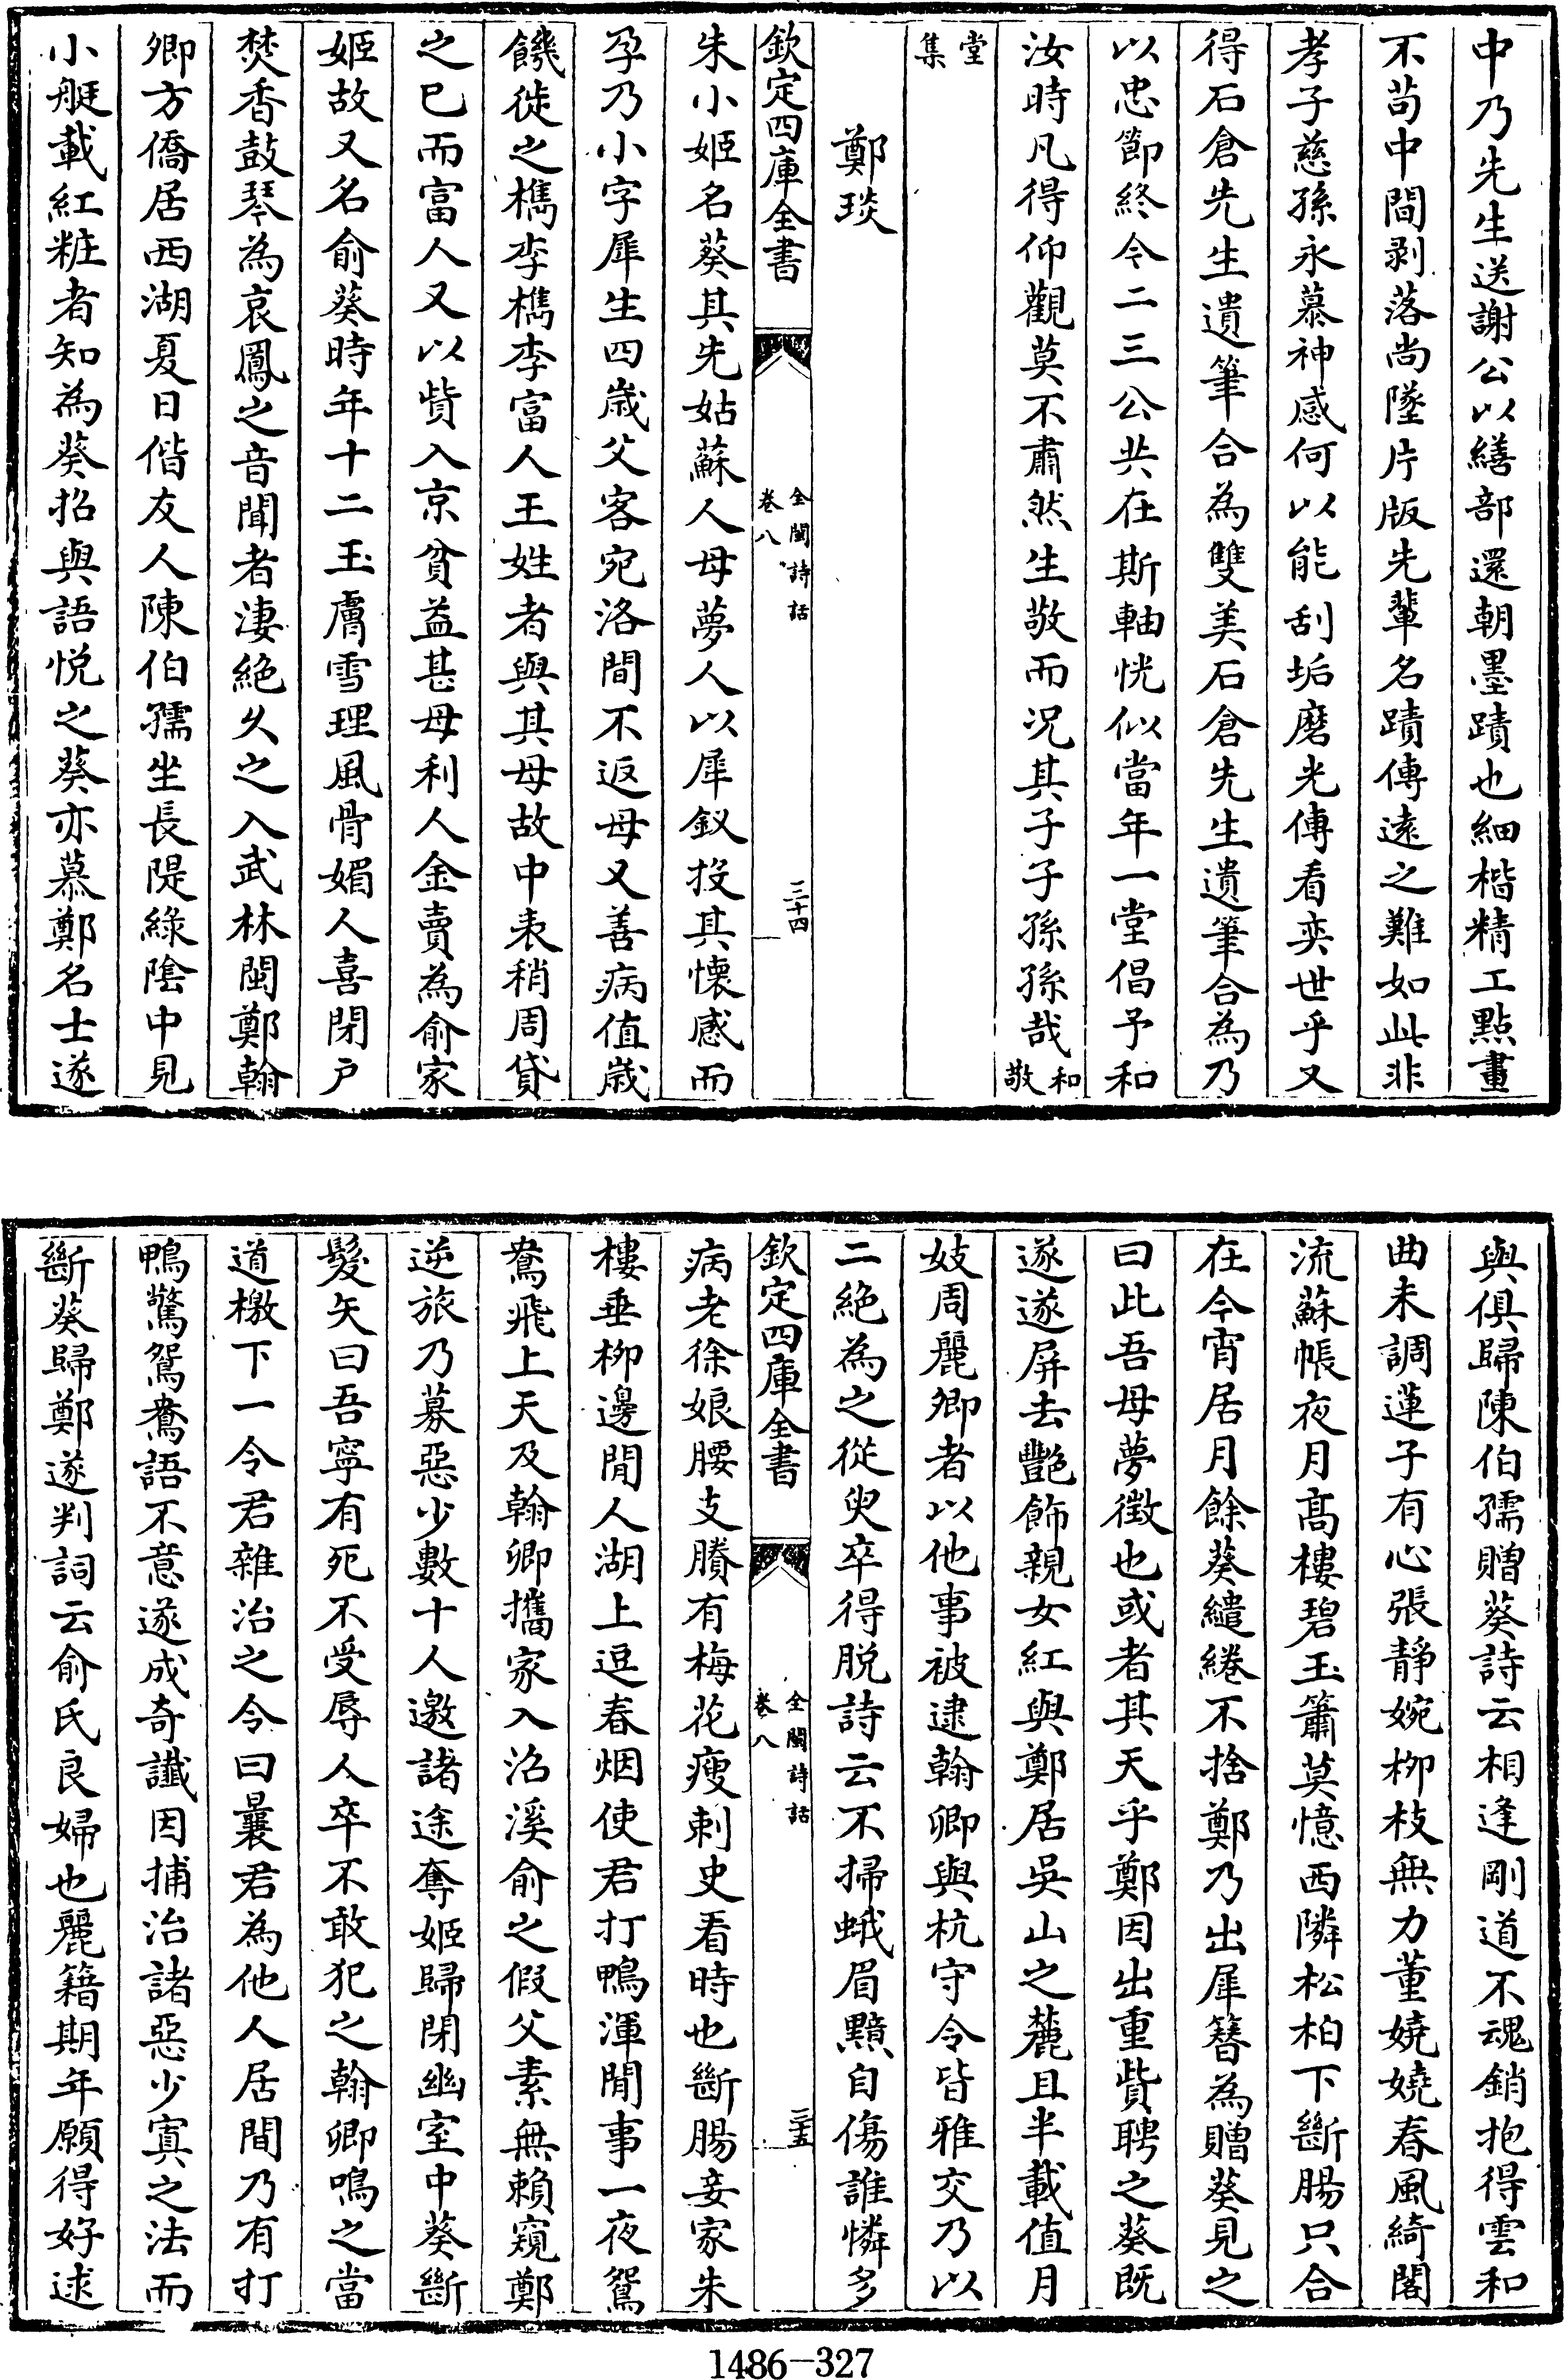 中乃先生送謝公以繕部還朝墨蹟也細楷精工點畫
不茍中間剥落尚墜片版先輩名蹟傳遠之難如此非
孝子慈孫永慕神感何以能刮垢磨光傳看奕世乎又
得石倉先生遺筆合為雙美石倉先生遺筆合為乃
以忠節終今二三公共在斯軸恍似當年一堂倡予和
汝時凡得仰觀莫不肅然生敬而况其子子孫孫哉和敬
堂集
鄭琰
欽定四庫全書
全閩詩話
卷八
三十四
朱小姬名葵其先姑蘇人母夢人以犀釵投其懷感而
孕乃小字犀生四歲父客宛洛間不返母又善病值歲
饑徙之檇李檇李富人王姓者與其母故中表稍周貸
之已而富人又以貲入京貧益甚母利人金賣為俞家
姬故又名俞葵時年十二玉膚雪理風骨媚人喜閉户
焚香鼓琴為哀鳳之音聞者凄絶久之入武林閩鄭翰
卿方僑居西湖夏日偕友人陳伯孺坐長隄綠陰中見
小艇載紅粧者知為葵招與語悦之葵亦慕鄭名士遂
與俱歸陳伯孺贈葵詩云相逢剛道不魂銷抱得雲和
曲未調蓮子有心張靜婉柳枝無力董嬈嬈春風綺閣
流蘇帳夜月髙樓碧玉簫莫憶西隣松柏下斷腸只合
在今宵居月餘葵繾綣不捨鄭乃出犀簪為贈葵見之
曰此吾母夢徴也或者其天乎鄭因出重貲聘之葵既
遂遂屏去艷飾親女紅與鄭居吳山之麓且半載值月
妓周麗卿者以他事被逮翰卿與杭守令皆雅交乃以
二絶為之從臾卒得脱詩云不掃蛾眉黯自傷誰憐多
欽定四庫全書
全閩詩話
卷八
三十五
病老徐娘腰支賸有梅花瘦刺史看時也斷腸妾家朱
樓垂柳邊閒人湖上逗春烟使君打鴨渾閒事一夜鴛
鴦飛上天及翰卿攜家入沿溪俞之假父素無賴窺鄭
逆旅乃募惡少數十人邀諸途奪姬歸閉幽室中葵斷
髮矢曰吾寧有死不受辱人卒不敢犯之翰卿鳴之當
道檄下一令君雜治之令曰曩君為他人居間乃有打
鴨驚鴛鴦語不意遂成奇讖因捕治諸惡少寘之法而
斷葵歸鄭遂判詞云俞氏良婦也麗籍期年願得好逑
1486-327